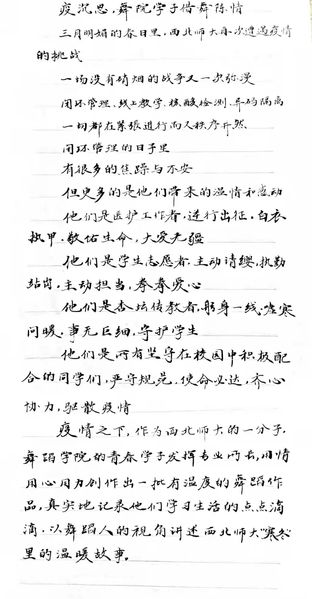 疫沉思,舞院学子借舞陈情
三月明媚的春日里,西北师大再次遭遇疫情
的挑战
一场没有硝烟的战争又一次弥漫
闭环管理、线上教学、核酸检测、异码隔离
一切都在紧张进行而又秩序井然
闭环管理的日子里
有很多的焦躁与不安
但更多的是他们带来的温情和感动
他们是医护工作者,逆行出征,白衣
执甲,敬佑生命,大爱无疆
他们是学生志愿者,主动请缨,执勤
站岗,主动担当,拳拳爱心
他们是杏坛传教者,躬身一线,嘘寒
问暖,事无巨细,守护学生
他们是所有坚守在校园中积极配
合的同学们,严守规范,使命必达,齐心
协力,驱散疫情
疫情之下,作为西北师大的一分子,
舞蹈学院的青春学子发挥专业所长,用情
用心用力创作出一批有温度的舞蹈作
品,真实地记录他们学习生活的点点滴
滴,以舞蹈人的视角讲述西北师大“寒冬”
里的温暖故事。